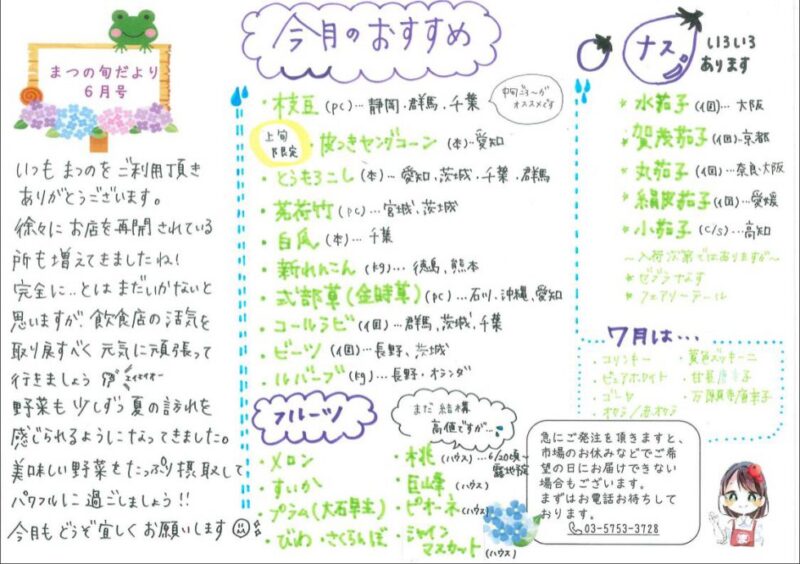 まつの旬だより
6月号
いつも まつのを ご利用頂き
ありがとうございます。
徐々に お店を再開されている
所も増えてきましたね！
完全に…とは まだいかないと
思いますが、飲食店の活気を
取り戻すべく 元気に頑張って
行きましょう
野菜も 少しずつ 夏の訪れを
感じられるようになってきました。
美味しい野菜をたっぷり摂取して
パワフルに過ごしましょう!!
今月もどうぞ宜しくお願いします
今月のおすすめ
・枝豆 (pc)… 静岡・群馬・千葉
中旬ごろ～が
オススメです
上旬
限定
・皮つきヤングコーン (本)…愛知
・とうもろこし (本)… 愛知、茨城、千葉、群馬
・茗荷竹 (pc)… 宮城、茨城
・白瓜 (本)… 千葉
・新れんこん (kg)… 徳島、熊本
・式部草(金時草) (pc)…石川、沖縄、愛知
・コールラビ (個)…群馬、茨城、千葉
・ビーツ (個)…長野、茨城
・ルバーブ (kg)…長野・オランダ
フルーツ
・メロン
・すいか
・プラム(大石早生)
・びわ・さくらんぼ
まだ 結構
高値ですが
・桃 (ハウス)…6/20頃～
露地予定
・巨峰 (ハウス)
・ピオーネ (ハウス)
・シャイン
マスカット (ハウス)
ナス
いろいろ
あります
水茄子 (個)… 大阪
賀茂茄子 (個)…京都
丸茄子 (個)…奈良・大阪
絹皮茄子 (個)…愛媛
小茄子 (c/s)…高知
～入荷次第ではありますが～
ゼブラなす
フェアリーテール
7月は…
・コリンキー
・ピュアホワイト
・ゴーヤ
・オクラ/赤オクラ
・黄色ズッキーニ
・甘長唐辛子
・万願寺唐辛子
急にご発注を頂きますと、
市場のお休みなどでご希
望の日にお届けできない
場合もございます。
まずはお電話お待ちして
おります。
03-5753-3728